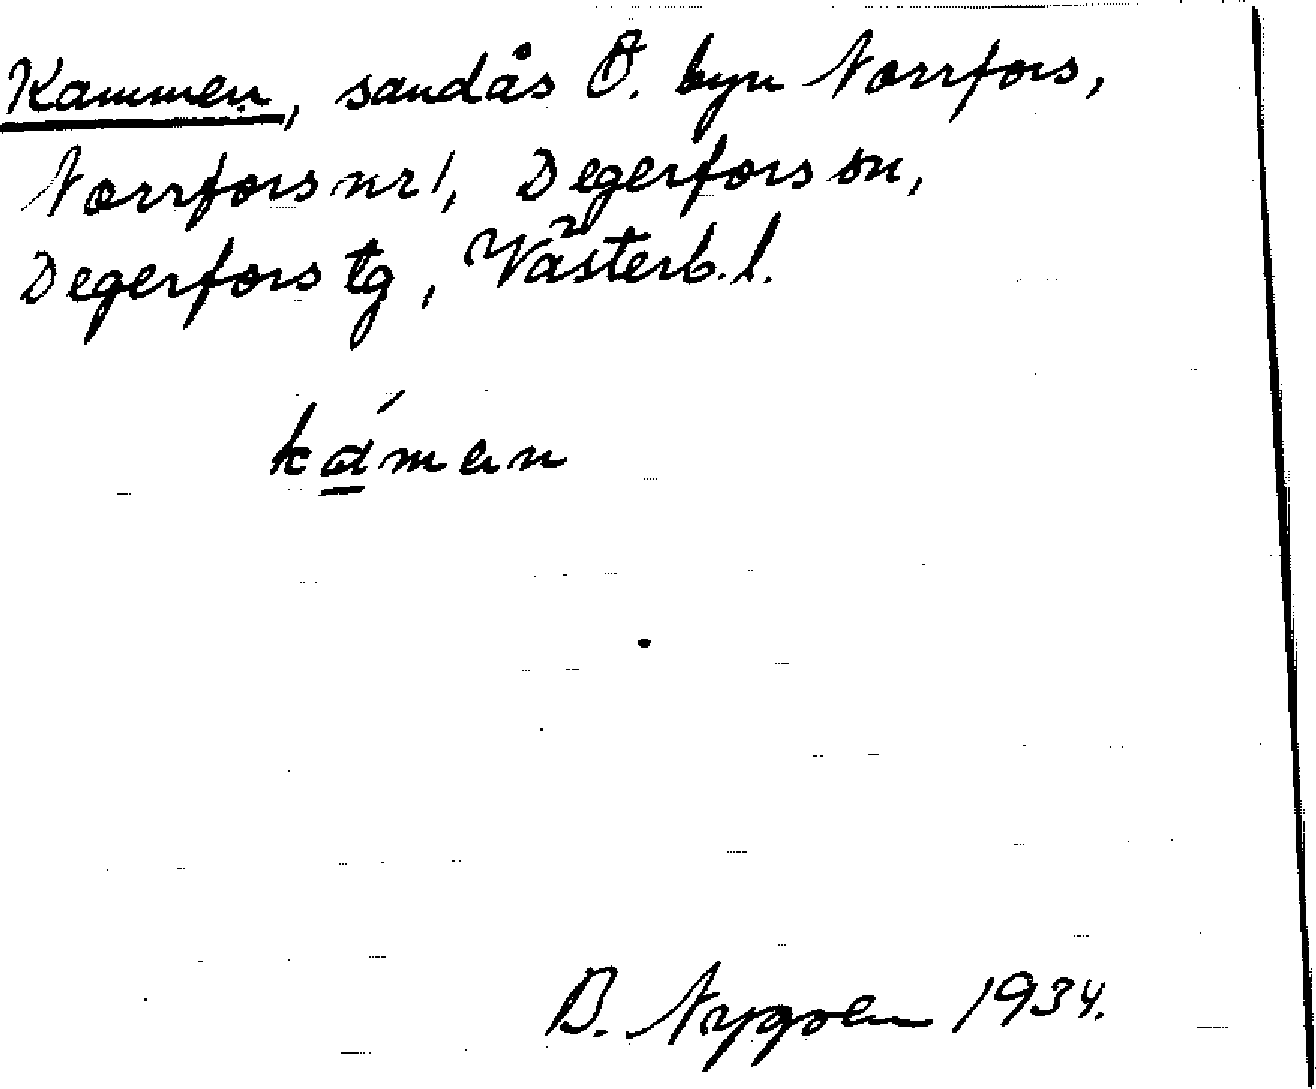 Kammen, sandås Ö. byn Norrfors,
Norrfors nr 1, Degerfors sn,
Degerfors tg, Västerb. l.
káman
B. Nygren 1934.